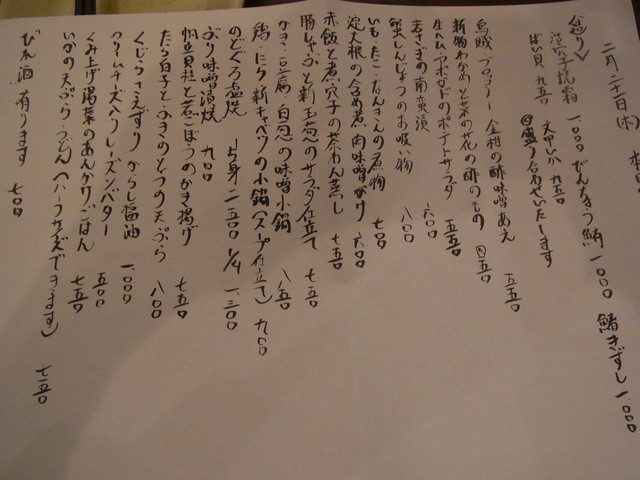 二月二十一日(木)
造り 活穴子焼霜 一、〇〇〇 だんちょう鮪 一、〇〇〇 鰆きずし 一、〇〇〇
ばい貝 九五〇 天然いか 九五〇
◎盛り合わせいたします
烏賊、ブロッコリー、金柑の酢味噌あえ 五五〇
新物わかめと菜の花の酢のもの 四五〇
生ハム、アボカドのポテトサラダ 五五〇
若さぎの南蛮漬 六〇〇
蟹しんじょうのお吸い物 八〇〇
いも・たこ・なんきんの煮物 七〇〇
淀大根の含め煮 肉味噌がけ 六〇〇
赤飯と煮穴子の茶わん蒸し 七五〇
豚しゃぶと新玉葱のサラダ仕立て 七五〇
かき・豆腐・白葱の味噌小鍋 八五〇
鶏・たら・新キャベツの小鍋(スープ仕立て) 九〇〇
のどぐろ塩焼 上身二、五〇〇 1/4 一、三〇〇
ぶり味噌漬焼 九〇〇
帆立貝柱と若ごぼうのかき揚げ 七五〇
たら白子とふきのとうの天ぷら 八〇〇
くじらさえずり からし醤油 一、〇〇〇
クリームチーズヘレーズンバター 五〇〇
くみ上げ湯葉のあんかけごはん 七五〇
いかの天ぷらうどん(ハーフサイズできます) 七五〇
ひれ酒有ります 七〇〇